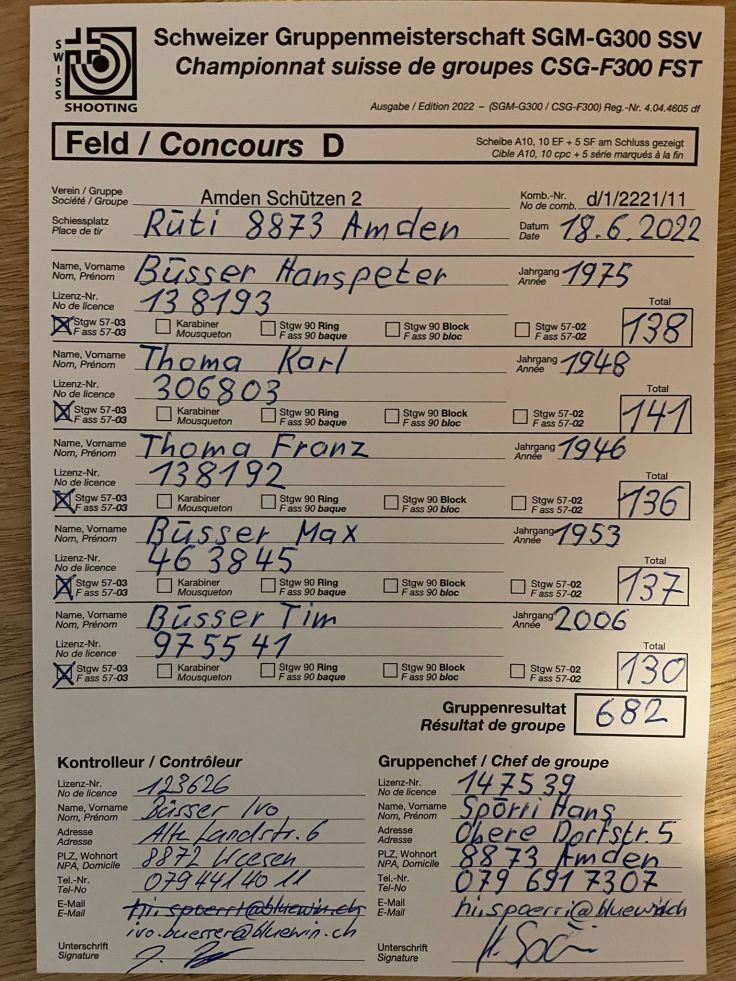 SWISS
SHOOTING
Schweizer Gruppenmeisterschaft SGM-G300 SSV
Championnat suisse de groupes CSG-F300 FST
Ausgabe / Edition 2022 – (SGM-G300 / CSG-F300) Reg.-Nr. 4.04.4605 df
Feld / Concours D
Scheibe A10, 10 EF + 5 SF am Schluss gezeigt
Cible A10, 10 cpc + 5 série marqués à la fin
Verein / Gruppe
Société / Groupe
Amden Schützen 2
Komb.-Nr.
No de comb.
d/1/2221/11
Schiessplatz
Place de tir
Rüti 8873 Amden
Datum
Date
18.6.2022
Name, Vorname
Nom, Prénom
Büsser Hanspeter
Jahrgang
Année
1975
Lizenz-Nr.
No de licence
138193
Total
138
Stgw 57-03
F ass 57-03
Karabiner
Mousqueton
Stgw 90 Ring
F ass 90 baque
Stgw 90 Block
F ass 90 bloc
Stgw 57-02
F ass 57-02
Name, Vorname
Nom, Prénom
Thoma Karl
Jahrgang
Année
1948
Lizenz-Nr.
No de licence
306803
Total
141
Stgw 57-03
F ass 57-03
Karabiner
Mousqueton
Stgw 90 Ring
F ass 90 baque
Stgw 90 Block
F ass 90 bloc
Stgw 57-02
F ass 57-02
Name, Vorname
Nom, Prénom
Thoma Franz
Jahrgang
Année
1946
Lizenz-Nr.
No de licence
138192
Total
136
Stgw 57-03
F ass 57-03
Karabiner
Mousqueton
Stgw 90 Ring
F ass 90 baque
Stgw 90 Block
F ass 90 bloc
Stgw 57-02
F ass 57-02
Name, Vorname
Nom, Prénom
Büsser Max
Jahrgang
Année
1953
Lizenz-Nr.
No de licence
463845
Total
137
Stgw 57-03
F ass 57-03
Karabiner
Mousqueton
Stgw 90 Ring
F ass 90 baque
Stgw 90 Block
F ass 90 bloc
Stgw 57-02
F ass 57-02
Name, Vorname
Nom, Prénom
Büsser Tim
Jahrgang
Année
2006
Lizenz-Nr.
No de licence
975541
Total
130
Stgw 57-03
F ass 57-03
Karabiner
Mousqueton
Stgw 90 Ring
F ass 90 baque
Stgw 90 Block
F ass 90 bloc
Stgw 57-02
F ass 57-02
Gruppenresultat
Résultat de groupe
682
Kontrolleur / Contrôleur
Lizenz-Nr.
No de licence
123626
Name, Vorname
Nom, Prénom
Büsser Ivo
Adresse
Adresse
Alte Landstr. 6
PLZ, Wohnort
NPA, Domicile
8872 Weesen
Tel.-Nr.
Tel-No
079 441 40 11
E-Mail
E-Mail
hi.spoerri@bluewin.ch
ivo.buesser@bluewin.ch
Unterschrift
Signature
Gruppenchef / Chef de groupe
Lizenz-Nr.
No de licence
147539
Name, Vorname
Nom, Prénom
Spörri Hans
Adresse
Adresse
Obere Dorfstr. 5
PLZ, Wohnort
NPA, Domicile
8873 Amden
Tel.-Nr.
Tel-No
079 691 7307
E-Mail
E-Mail
hi.spoerri@bluewin.ch
Unterschrift
Signature